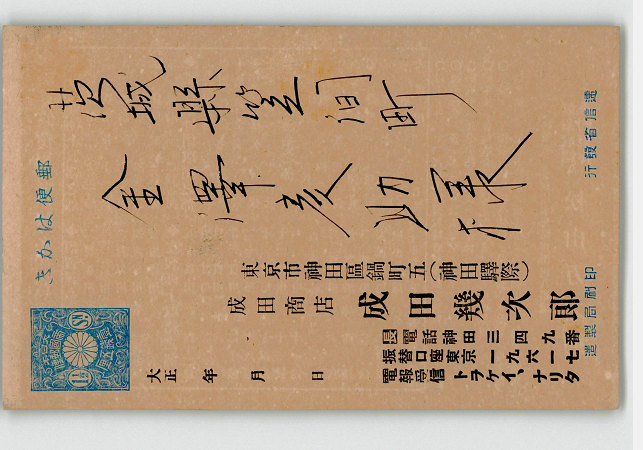 茨城縣笠間町
金澤彦助
郵便はかき
遞信省發行
印刷局製造
東京市神田區鍋町五(神田驛際)
成田商店 成田幾次郎
電話神田三四九番
振替口座東京一九六一七
電報受信トラケイ、ナリタ
大正 年 月 日